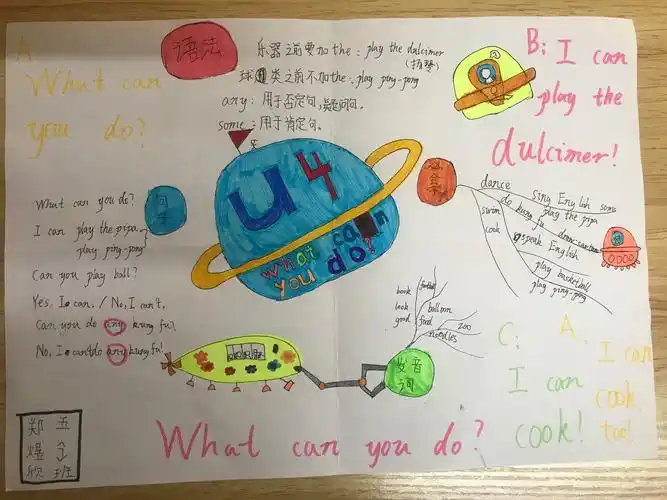 A
What can
you do?
语法
乐器之前要加the：play the dulcimer
(扬琴)
球类之前不加the：play ping-pong
any：用于否定句，疑问句。
some：用于肯定句。
B: I can
play the
dulcimer!
U4
What can
you do?
句子
What can you do?
I can play the pipa
play ping-pong
Can you play ball?
Yes, I can. / No, I can't.
Can you do any kung fu?
No, I can't do any kung fu!
dance
swim
cook
Sing English songs
play the pipa
do kung fu
draw cartoons
speak English
play basketball
play ping-pong
发音词
book
look
good
football
balloon
food
zoo
noodles
C:
I can
cook!
A.
I can
cook,
too!
What can you do?
郑 五
煜
欣 班